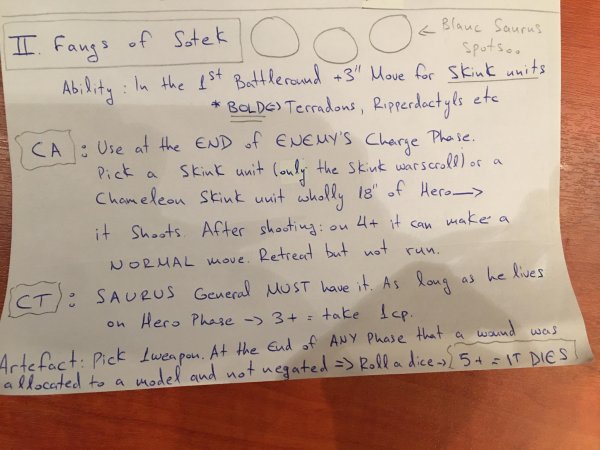 II. Fangs of Sotek
← Blanc Saurus
Spots...
Ability: In the 1st Battleround +3" Move for Skink units
* BOLD Terradons, Ripperdactyls etc
CA : Use at the END of ENEMY'S Charge Phase.
Pick a Skink unit (only the Skink warscroll) or a
Chameleon Skink unit wholly 18" of Hero →
it Shoots. After shooting: on 4+ it can make a
NORMAL move. Retreat but not run.
CT : SAURUS General MUST have it. As long as he lives
on Hero Phase → 3+ = take 1cp.
Artefact: Pick 1weapon. At the End of ANY Phase that a wound was
allocated to a model and not negated => Roll a dice → 5+ = IT DIES